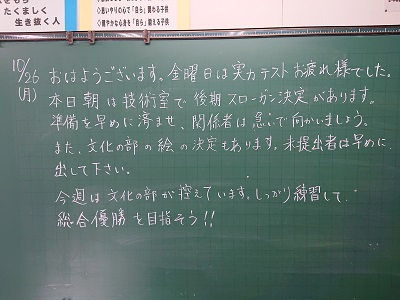 たくましく
生き抜く人
◇思いやりの心で「自ら」関わる子供
◇健やかな心身を「自ら」鍛える子供
10/26
(月)
おはようございます。金曜日は実力テストお疲れ様でした。
本日朝は技術室で後期スローガン決定があります。
準備を早めに済ませ、関係者は急いで向かいましょう。
また、文化の部の絵の決定もあります。未提出者は早めに
出して下さい。
今週は文化の部が控えています。しっかり練習して、
総合優勝を目指そう!!